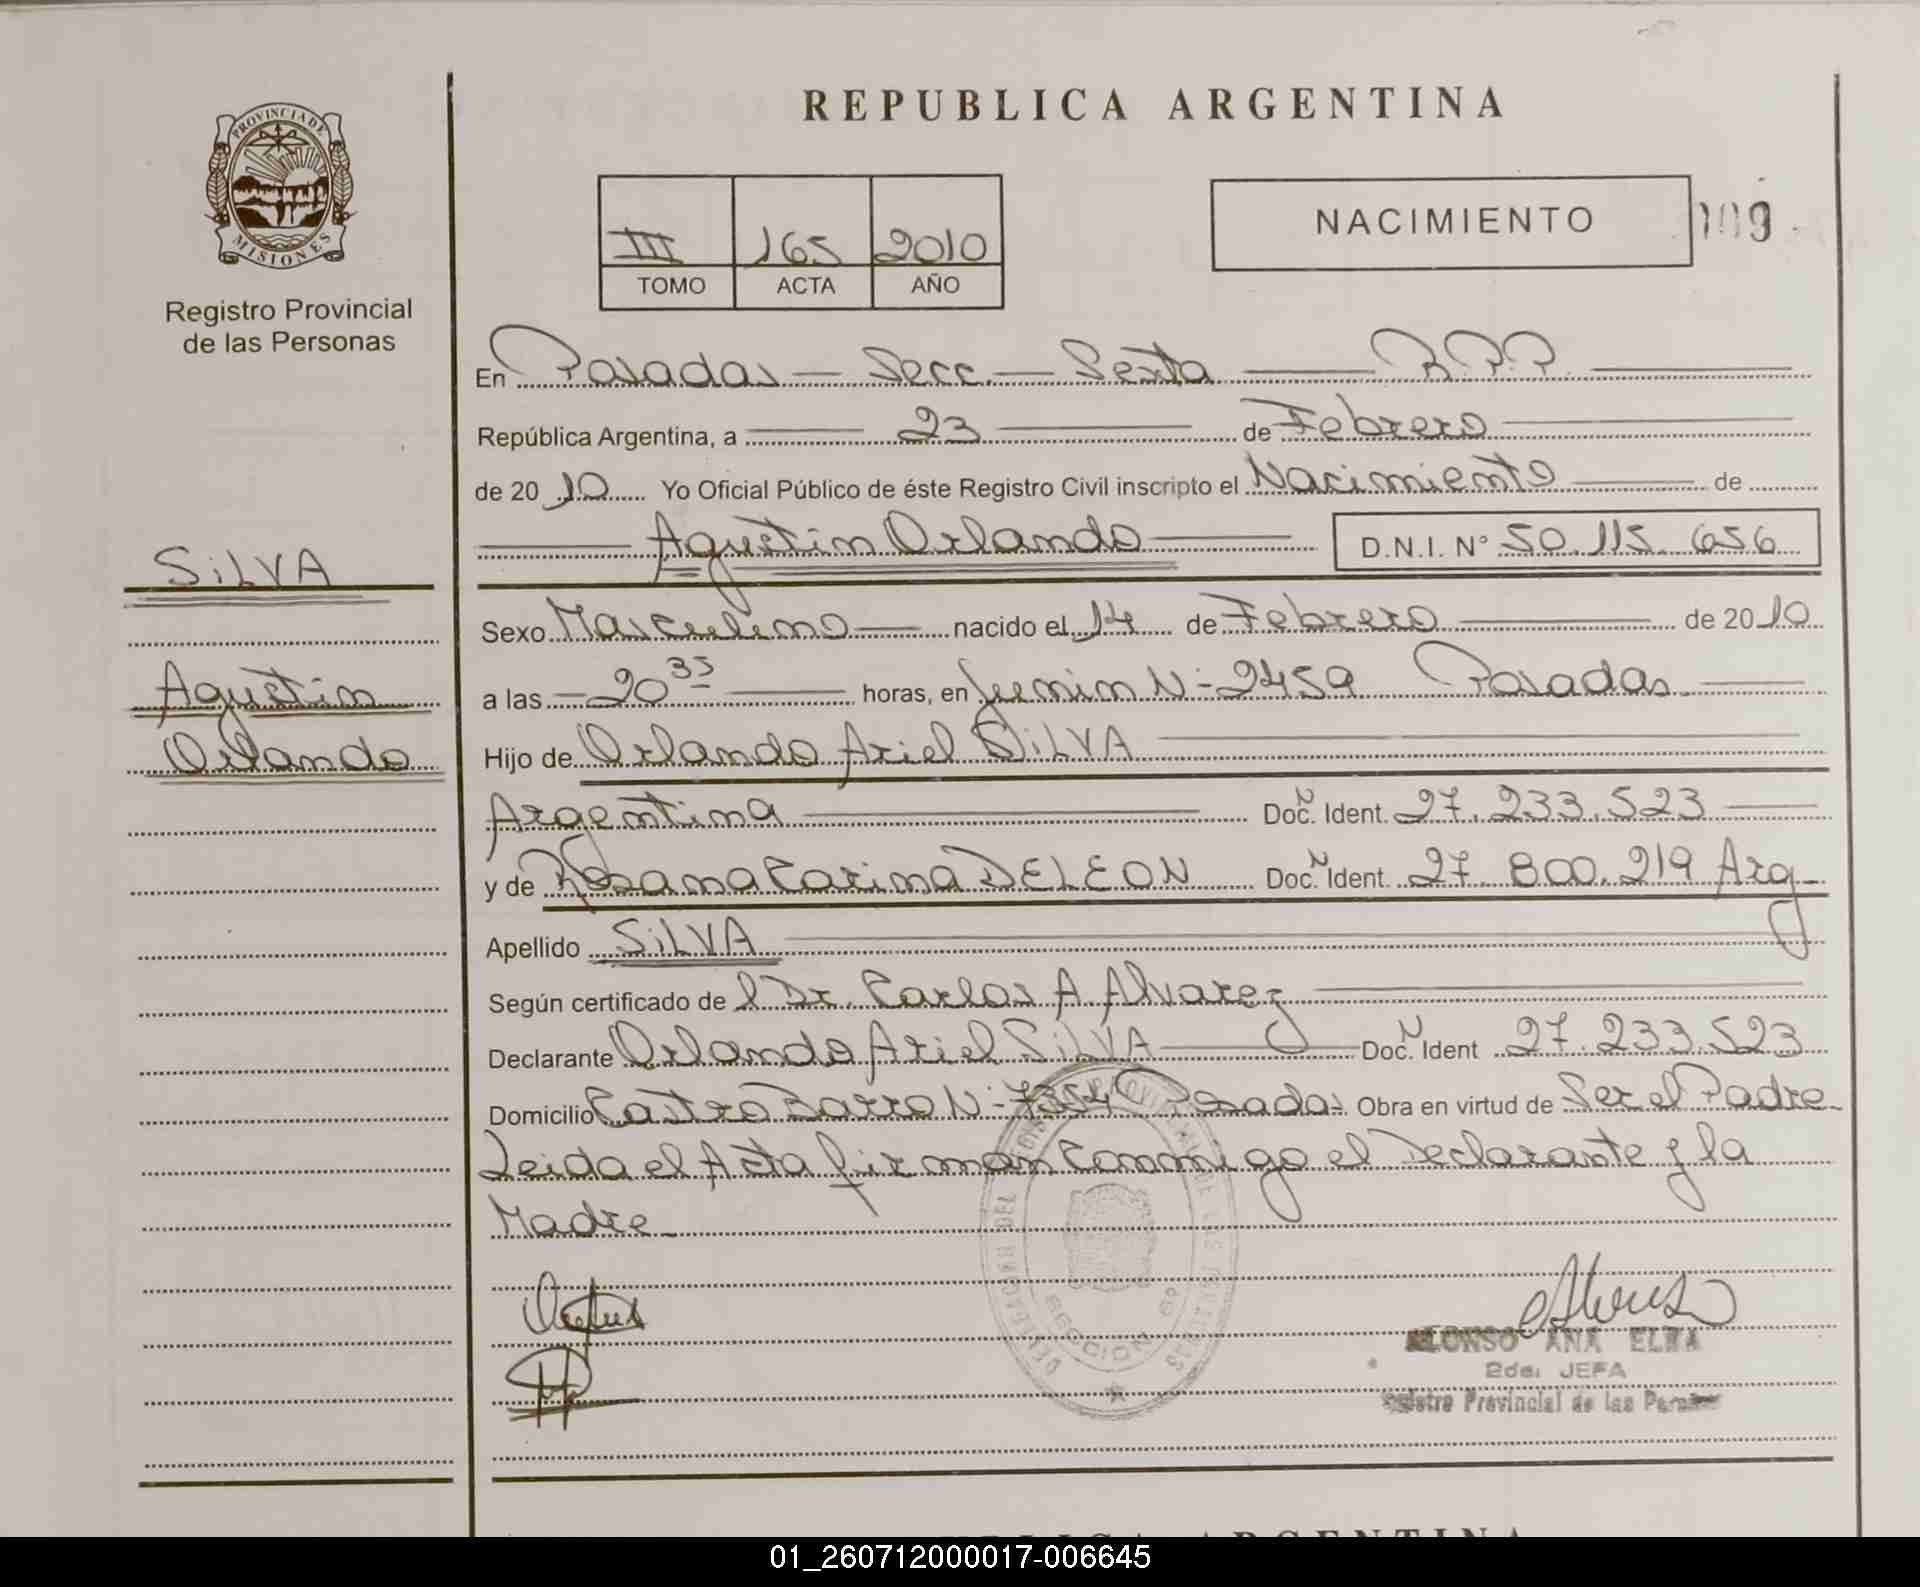 REPUBLICA ARGENTINA
PROVINCIA DE
MISIONES
Registro Provincial
de las Personas
III 165 2010
TOMO ACTA AÑO
NACIMIENTO
109
En Posadas — Secc. — Sexta — R.P.P.
República Argentina, a 23 de Febrero
de 20 10 Yo Oficial Público de éste Registro Civil inscripto el Nacimiento de
Agustin Orlando D.N.I. N° 50.115.656
SiLVA
Agustin
Orlando
Sexo Masculino nacido el 14 de Febrero de 20 10
a las 20 35 horas, en Junin N-2459 Posadas
Hijo de Orlando Ariel SiLVA
Argentina Doc. N Ident. 27.233.523
y de Rosana Carina DELEON Doc. N Ident. 27.800.219 Arg
Apellido SiLVA
Según certificado de l Dr. Carlos A Alvarez
Declarante Orlando Ariel SiLVA Doc. N Ident 27.233.523
Domicilio Castro Barro N-7354 Posadas. Obra en virtud de Ser el Padre
Leida el Acta firman Conmigo el Declarante y la
Madre
ALONSO ANA ELBA
2da. JEFA
Registro Provincial de las Personas
01_260712000017-006645